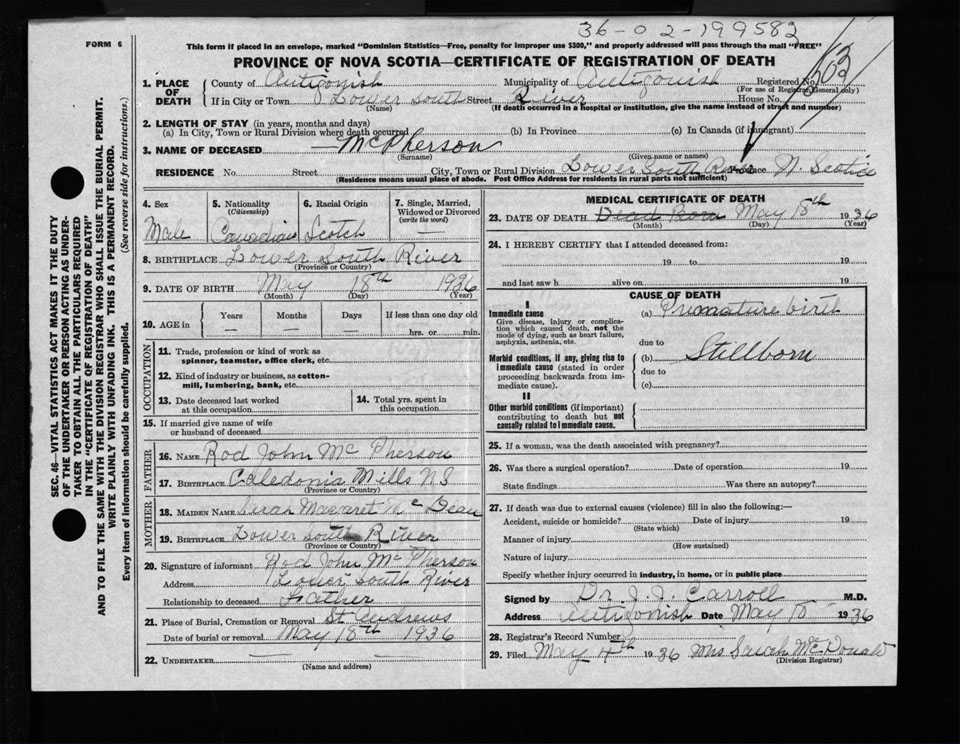 36-02-199582
FORM 6
This form if placed in an envelope, marked "Dominion Statistics—Free, penalty for improper use $300," and properly addressed will pass through the mail "FREE"
PROVINCE OF NOVA SCOTIA—CERTIFICATE OF REGISTRATION OF DEATH
1. PLACE OF DEATH
County of Antigonish Municipality of Antigonish Registered No. 503
(For use of Registrar General only)
If in City or Town Lower South Street River House No.
(Name) (If death occurred in a hospital or institution, give the name instead of street and number)
2. LENGTH OF STAY (in years, months and days)
(a) In City, Town or Rural Division where death occurred (b) In Province (c) In Canada (if immigrant)
3. NAME OF DECEASED — McPherson
(Surname) (Given name or names)
RESIDENCE No. Street City, Town or Rural Division Lower South River Province N. Scotia
(Residence means usual place of abode. Post Office Address for residents in rural parts not sufficient)
4. Sex
Male
5. Nationality
(Citizenship)
Canadian
6. Racial Origin
Scotch
7. Single, Married, Widowed or Divorced
(write the word)
—
8. BIRTHPLACE Lower South River
(Province or Country)
9. DATE OF BIRTH May 18th 1936
(Month) (Day) (Year)
10. AGE in
Years Months Days If less than one day old
— — — hrs. or min.
OCCUPATION
11. Trade, profession or kind of work as
spinner, teamster, office clerk, etc.
12. Kind of industry or business, as cotton-
mill, lumbering, bank, etc.
13. Date deceased last worked
at this occupation
14. Total yrs. spent in
this occupation
15. If married give name of wife
or husband of deceased
FATHER
16. NAME Rod John Mc Pherson
17. BIRTHPLACE Caledonia Mills N S
(Province or Country)
MOTHER
18. MAIDEN NAME Sarah Margaret
19. BIRTHPLACE Lower South River
(Province or Country)
20. Signature of informant Rod John Mc Pherson
Address Lower South River
Relationship to deceased Father
21. Place of Burial, Cremation or Removal St Andrews
Date of burial or removal May 18th 1936
22. UNDERTAKER
(Name and address)
MEDICAL CERTIFICATE OF DEATH
23. DATE OF DEATH Dead Born May 18th 1936
(Month) (Day) (Year)
24. I HEREBY CERTIFY that I attended deceased from:
19 to 19
and last saw h alive on 19
CAUSE OF DEATH
I
Immediate cause
Give disease, injury or complica-
tion which caused death, not the
mode of dying, such as heart failure,
asphyxia, asthenia, etc.
(a) Premature birth
due to
Morbid conditions, if any, giving rise to
immediate cause (stated in order
proceeding backwards from im-
mediate cause).
(b) Stillborn
due to
(c)
II
Other morbid conditions (if important)
contributing to death but not
causally related to immediate cause.
25. If a woman, was the death associated with pregnancy?
26. Was there a surgical operation? Date of operation 19
State findings Was there an autopsy?
27. If death was due to external causes (violence) fill in also the following:—
Accident, suicide or homicide? Date of injury 19
(State which)
Manner of injury
(How sustained)
Nature of injury
Specify whether injury occurred in industry, in home, or in public place
Signed by Dr. J. J. Carroll M.D.
Address Antigonish Date May 18 1936
28. Registrar's Record Number
29. Filed May 1936 Mrs Sarah Mc Donald
(Division Registrar)
SEC. 46—VITAL STATISTICS ACT MAKES IT THE DUTY
OF THE UNDERTAKER OR PERSON ACTING AS UNDER-
TAKER TO OBTAIN ALL THE PARTICULARS REQUIRED
IN THE "CERTIFICATE OF REGISTRATION OF DEATH"
AND TO FILE THE SAME WITH THE DIVISION REGISTRAR WHO SHALL ISSUE THE BURIAL PERMIT.
WRITE PLAINLY WITH UNFADING INK. THIS IS A PERMANENT RECORD.
Every item of Information should be carefully supplied. (See reverse side for instructions.)